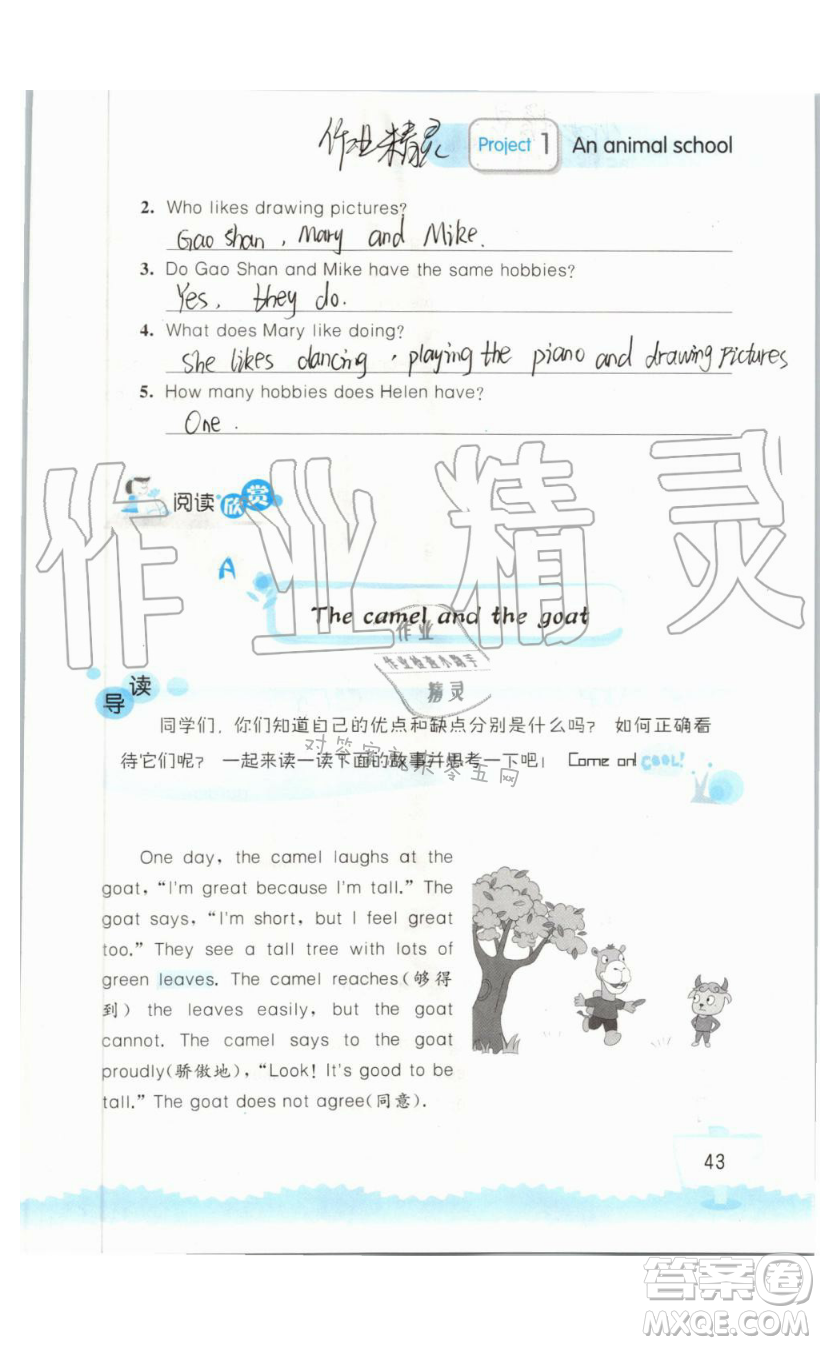 作业精灵 Project 1 An animal school
2. Who likes drawing pictures?
Gao Shan, Mary and Mike.
3. Do Gao Shan and Mike have the same hobbies?
Yes, they do.
4. What does Mary like doing?
She likes dancing, playing the piano and drawing Pictures
5. How many hobbies does Helen have?
One.
阅读欣赏
作业精灵
A
The camel and the goat
作业
作业检查小助手
精灵
导读
同学们，你们知道自己的优点和缺点分别是什么吗？ 如何正确看
待它们呢？ 一起来读一读下面的故事并思考一下吧！ Come on! COOL!
对答案就来零五网
One day, the camel laughs at the
goat, “I'm great because I'm tall.” The
goat says, “I'm short, but I feel great
too.” They see a tall tree with lots of
green leaves. The camel reaches(够得
到) the leaves easily, but the goat
cannot. The camel says to the goat
proudly(骄傲地), “Look! It's good to be
tall.” The goat does not agree(同意).
43
答案圈
MXQE.COM